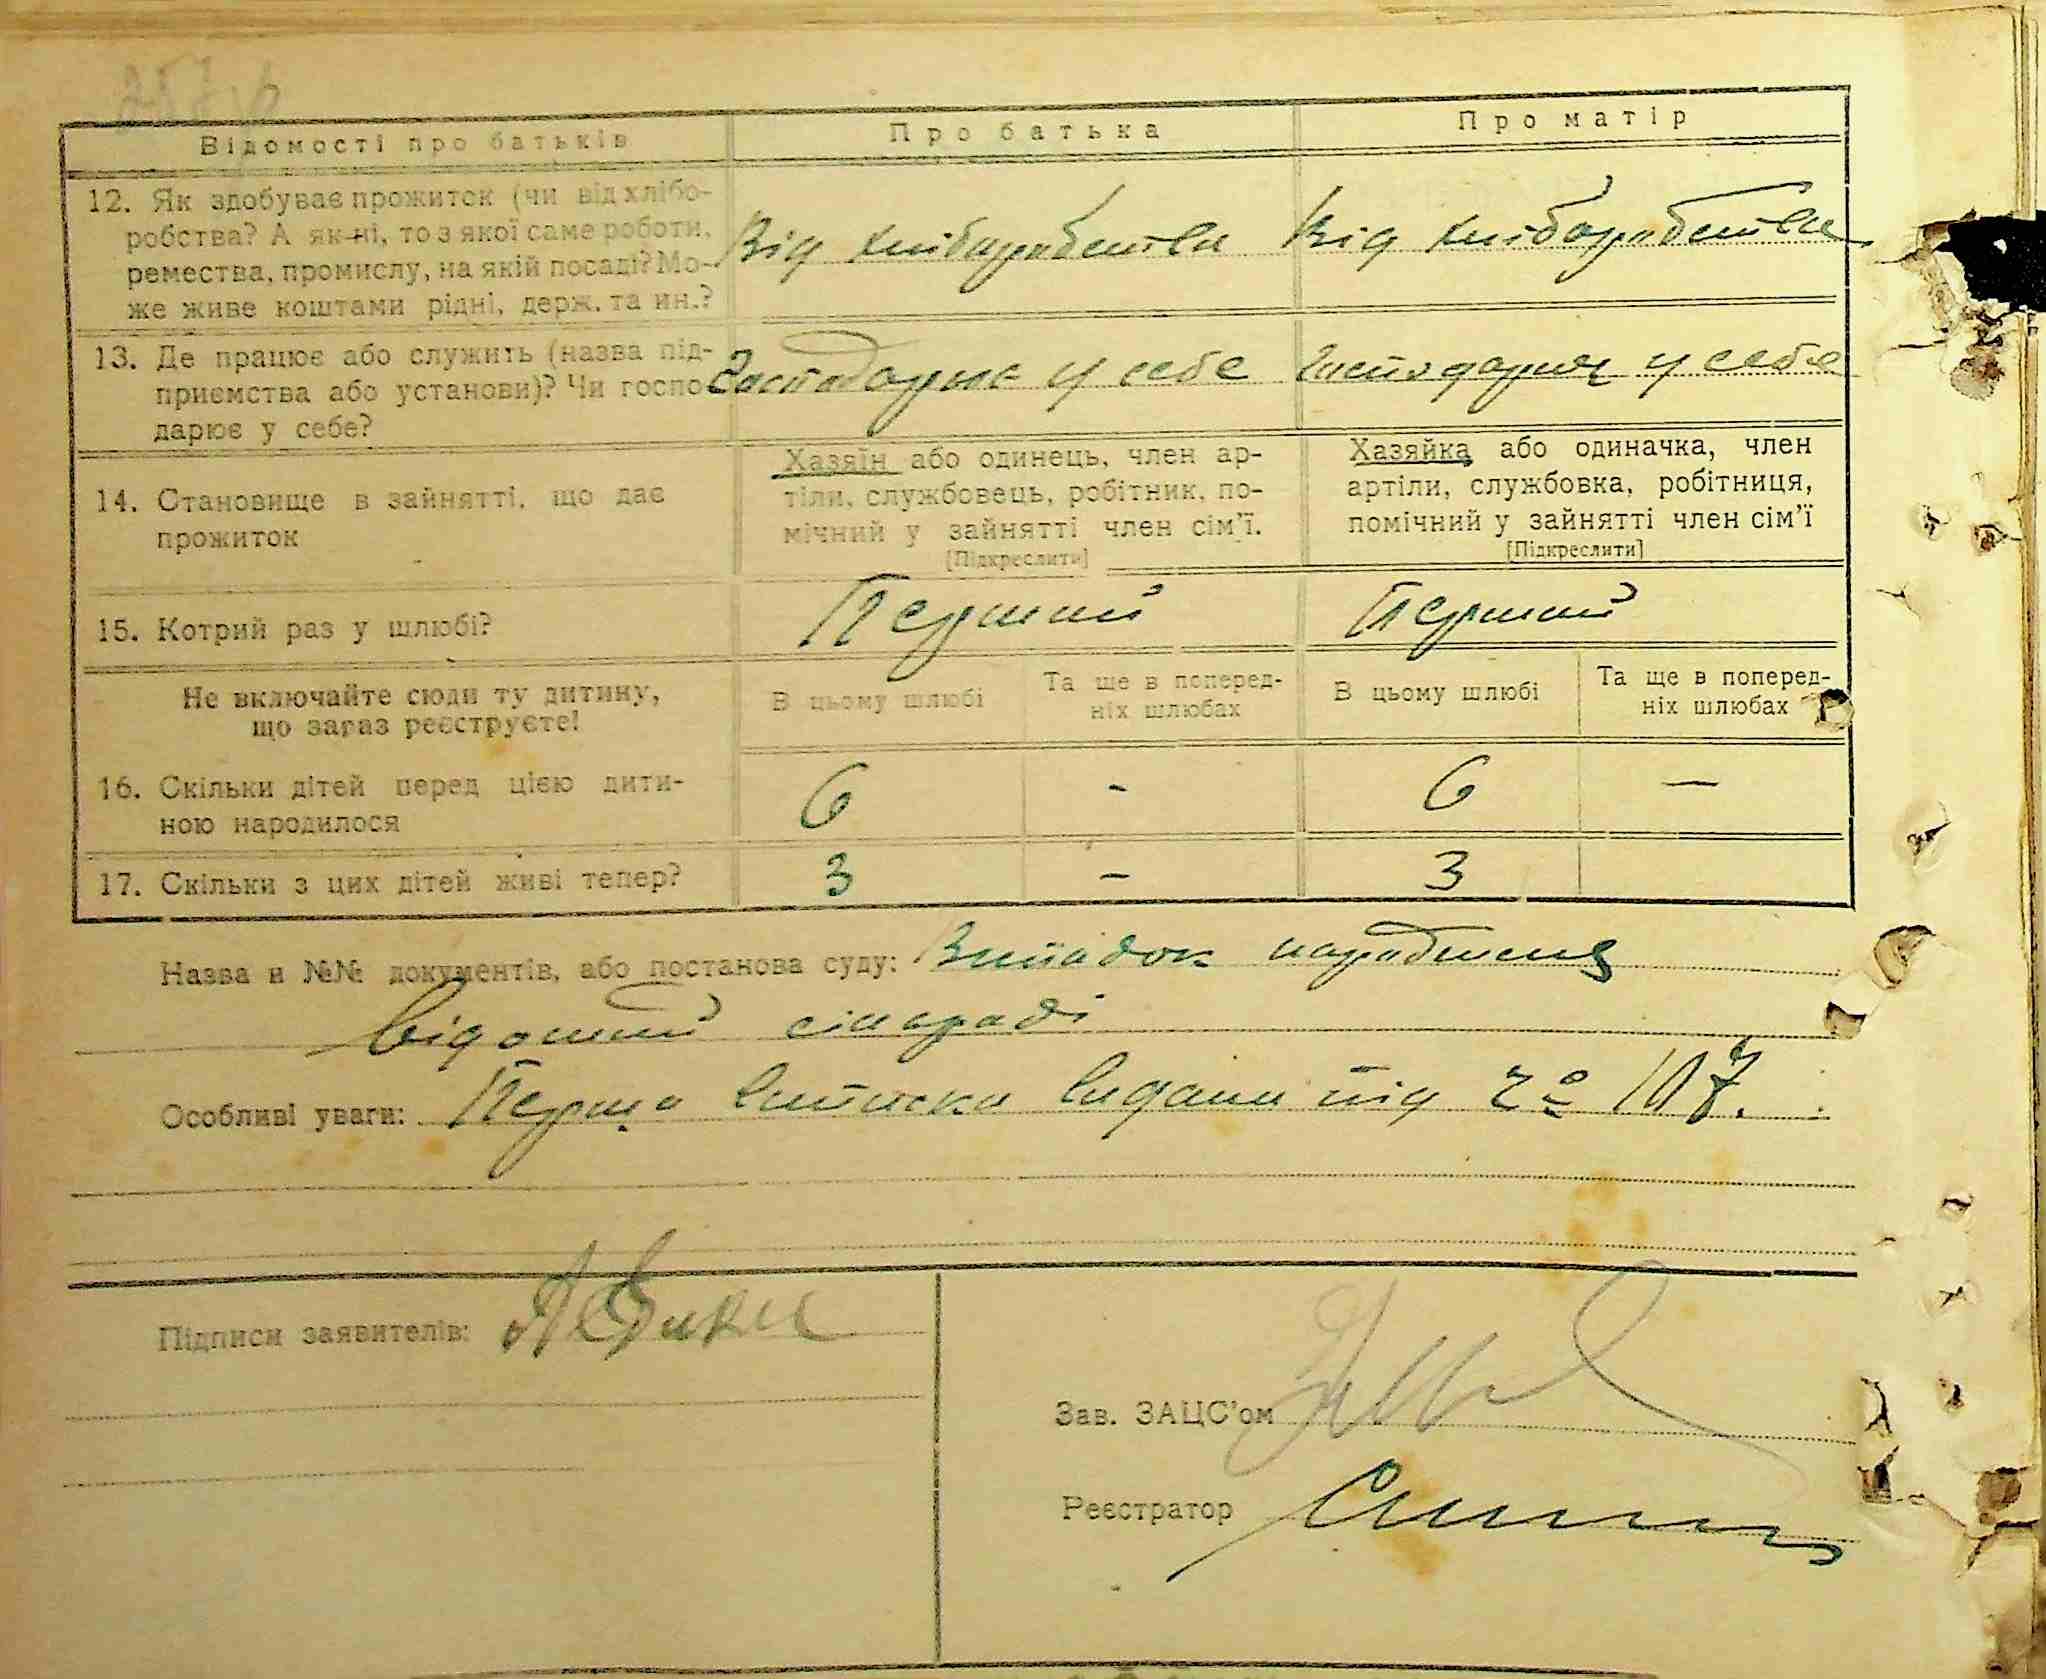 Відомості про батьків Про батька Про матір
12. Як здобуває прожиток (чи від хлібо-
робства? А як ні, то з якої саме роботи,
ремества, промислу, на якій посаді? Мо-
же живе коштами рідні, держ. та ин.?
Від хліборобства Від хліборобства
13. Де працює або служить (назва під-
приємства або установи)? Чи госпо-
дарює у себе?
Господарює у себе Господарює у себе
14. Становище в зайнятті, що дає
прожиток
Хазяїн або одинець, член ар-
тіли, службовець, робітник, по-
мічний у зайнятті член сім'ї.
[Підкреслити]
Хазяйка або одиначка, член
артіли, службовка, робітниця,
помічний у зайнятті член сім'ї
[Підкреслити]
15. Котрий раз у шлюбі? Перший Перший
Не включайте сюди ту дитину,
що зараз реєструєте!
В цьому шлюбі
Та ще в поперед-
ніх шлюбах
В цьому шлюбі
Та ще в поперед-
ніх шлюбах
16. Скільки дітей перед цією дити-
ною народилося
6 - 6 —
17. Скільки з цих дітей живі тепер? 3 - 3
Назва и №№ документів, або постанова суду: Випадок народження
відомий сільраді
Особливі уваги: Перша виписка видана під № 107.
Підписи заявителів:
Зав. ЗАЦС'ом
Реєстратор